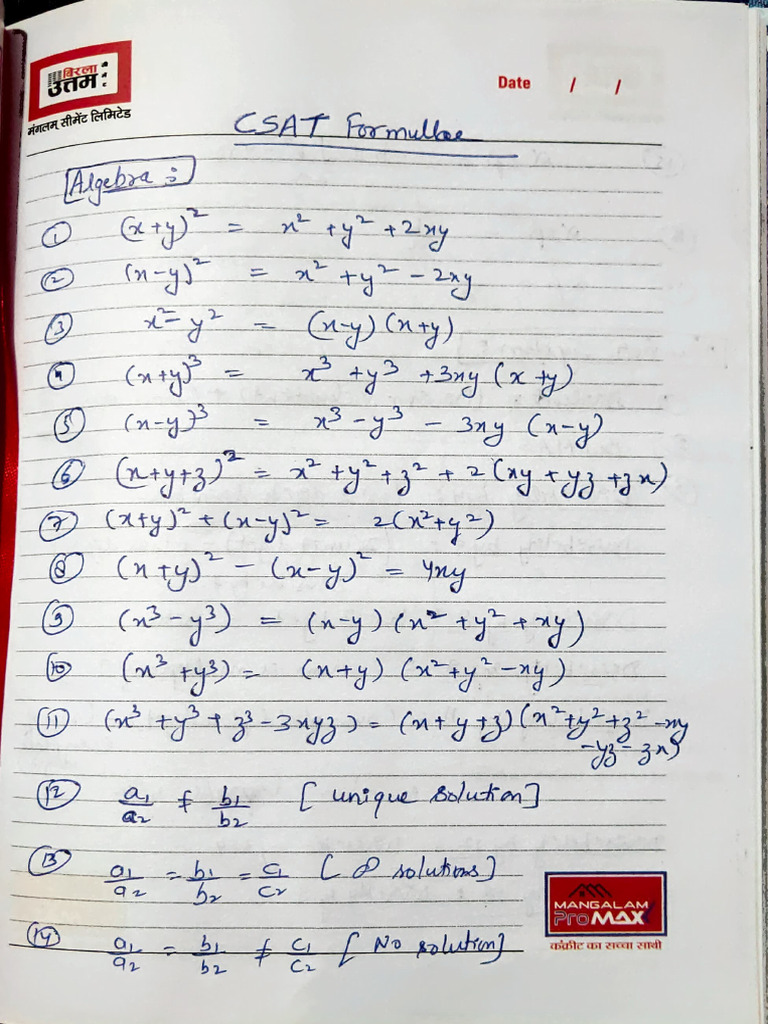 बिरला
उत्तम
मंगलम् सीमेंट लिमिटेड
Date / /
CSAT Formullae
Algebra :
① (x+y)² = x² + y² + 2xy
② (x-y)² = x² + y² - 2xy
③ x² - y² = (x-y) (x+y)
④ (x+y)³ = x³ + y³ + 3xy (x+y)
⑤ (x-y)³ = x³ - y³ - 3xy (x-y)
⑥ (x+y+z)² = x² + y² + z² + 2 (xy + yz + zx)
⑦ (x+y)² + (x-y)² = 2(x²+y²)
⑧ (x+y)² - (x-y)² = 4xy
⑨ (x³ - y³) = (x-y) (x² + y² + xy)
⑩ (x³ + y³) = (x+y) (x² + y² - xy)
⑪ (x³ + y³ + z³ - 3xyz) = (x+y+z) (x²+y²+z² - xy
- yz - zx)
⑫ a₁/a₂ ≠ b₁/b₂ [ unique solution]
⑬ a₁/a₂ = b₁/b₂ = c₁/c₂ [ ∞ solutions]
⑭ a₁/a₂ = b₁/b₂ ≠ c₁/c₂ [ No solution]
MANGALAM
ProMAXX
कंक्रीट का सच्चा साथी